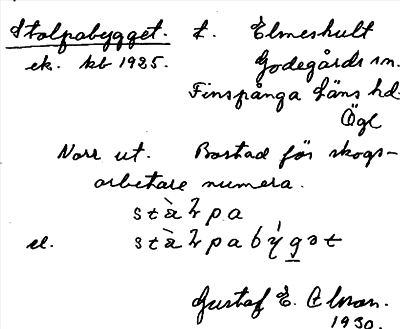 Stolpabygget. t. Elmeshult
ek. kb 1925. Godegårds sn.
Finspånga läns hd.
Ögl
Norr ut. Bostad för skogs-
arbetare numera.
stàlpa
el. stàlpabýgət
Gustaf E.
1930.